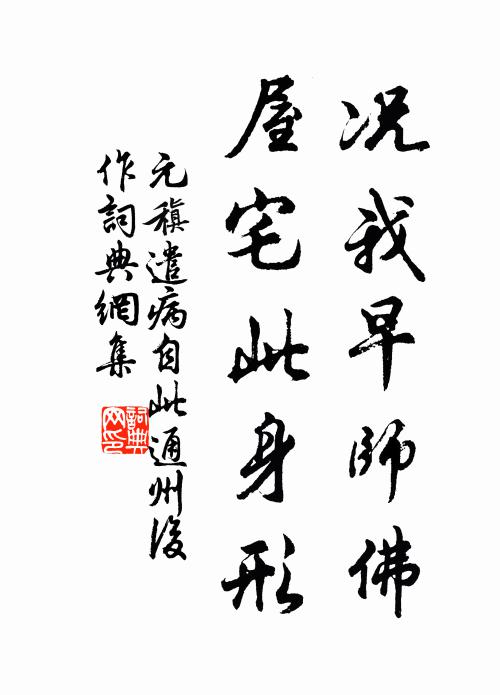 况我早師佛
屋宅此身形
元稹遣病自此通州後
作詞典網集
詞典网印